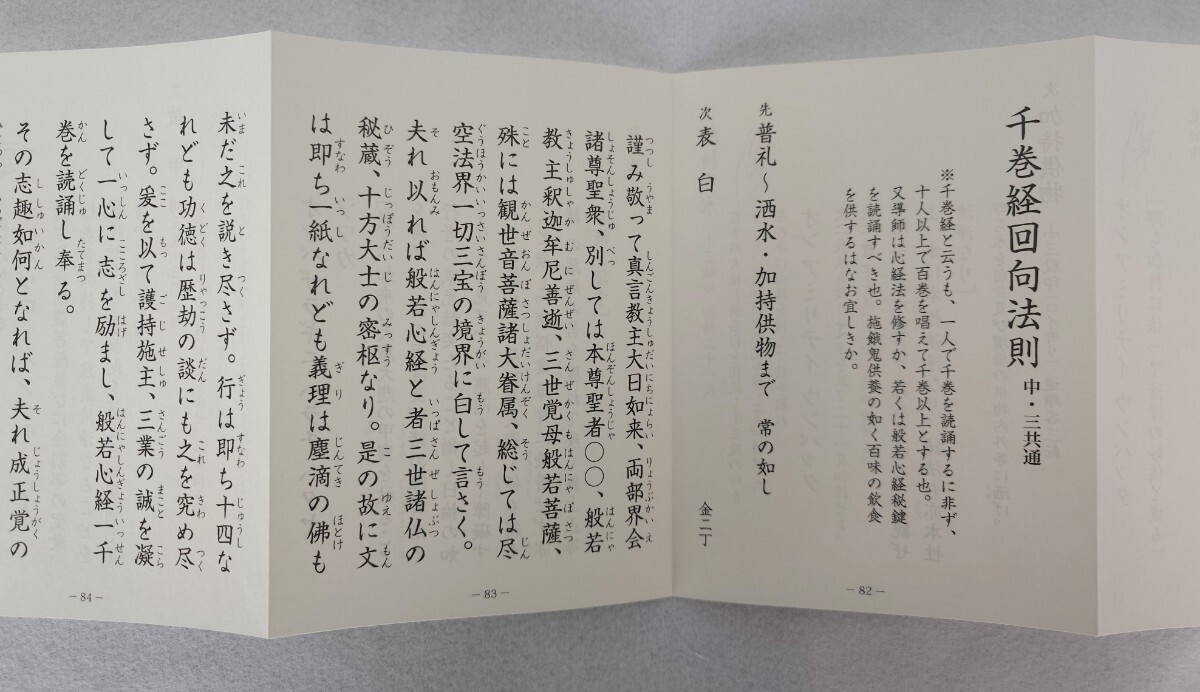 千巻経回向法則 中・三共通
※千巻経と云うも、一人で千巻を読誦するに非ず、
十人以上で百巻を唱えて千巻以上とする也。
又導師は心経法を修すか、若くは般若心経秘鍵
を読誦すべき也。施餓鬼供養の如く百味の飲食
を供するはなお宜しきか。
先 普礼～洒水・加持供物まで 常の如し
次 表白 金二丁
－82－
謹み敬って真言教主大日如来、両部界会
諸尊聖衆、別しては本尊聖者〇〇、般若
教主釈迦牟尼善逝、三世覚母般若菩薩、
殊には観世音菩薩諸大眷属、総じては尽
空法界一切三宝の境界に白して言さく。
夫れ以れば般若心経と者三世諸仏の
秘蔵、十方大士の密枢なり。是の故に文
は即ち一紙なれども義理は塵滴の佛も
－83－
未だ之を説き尽さず。行は即ち十四な
れども功徳は歴劫の談にも之を究め尽
さず。爰を以て護持施主、三業の誠を凝
して一心に志を励まし、般若心経一千
巻を読誦し奉る。
その志趣如何となれば、夫れ成正覚の
－84－